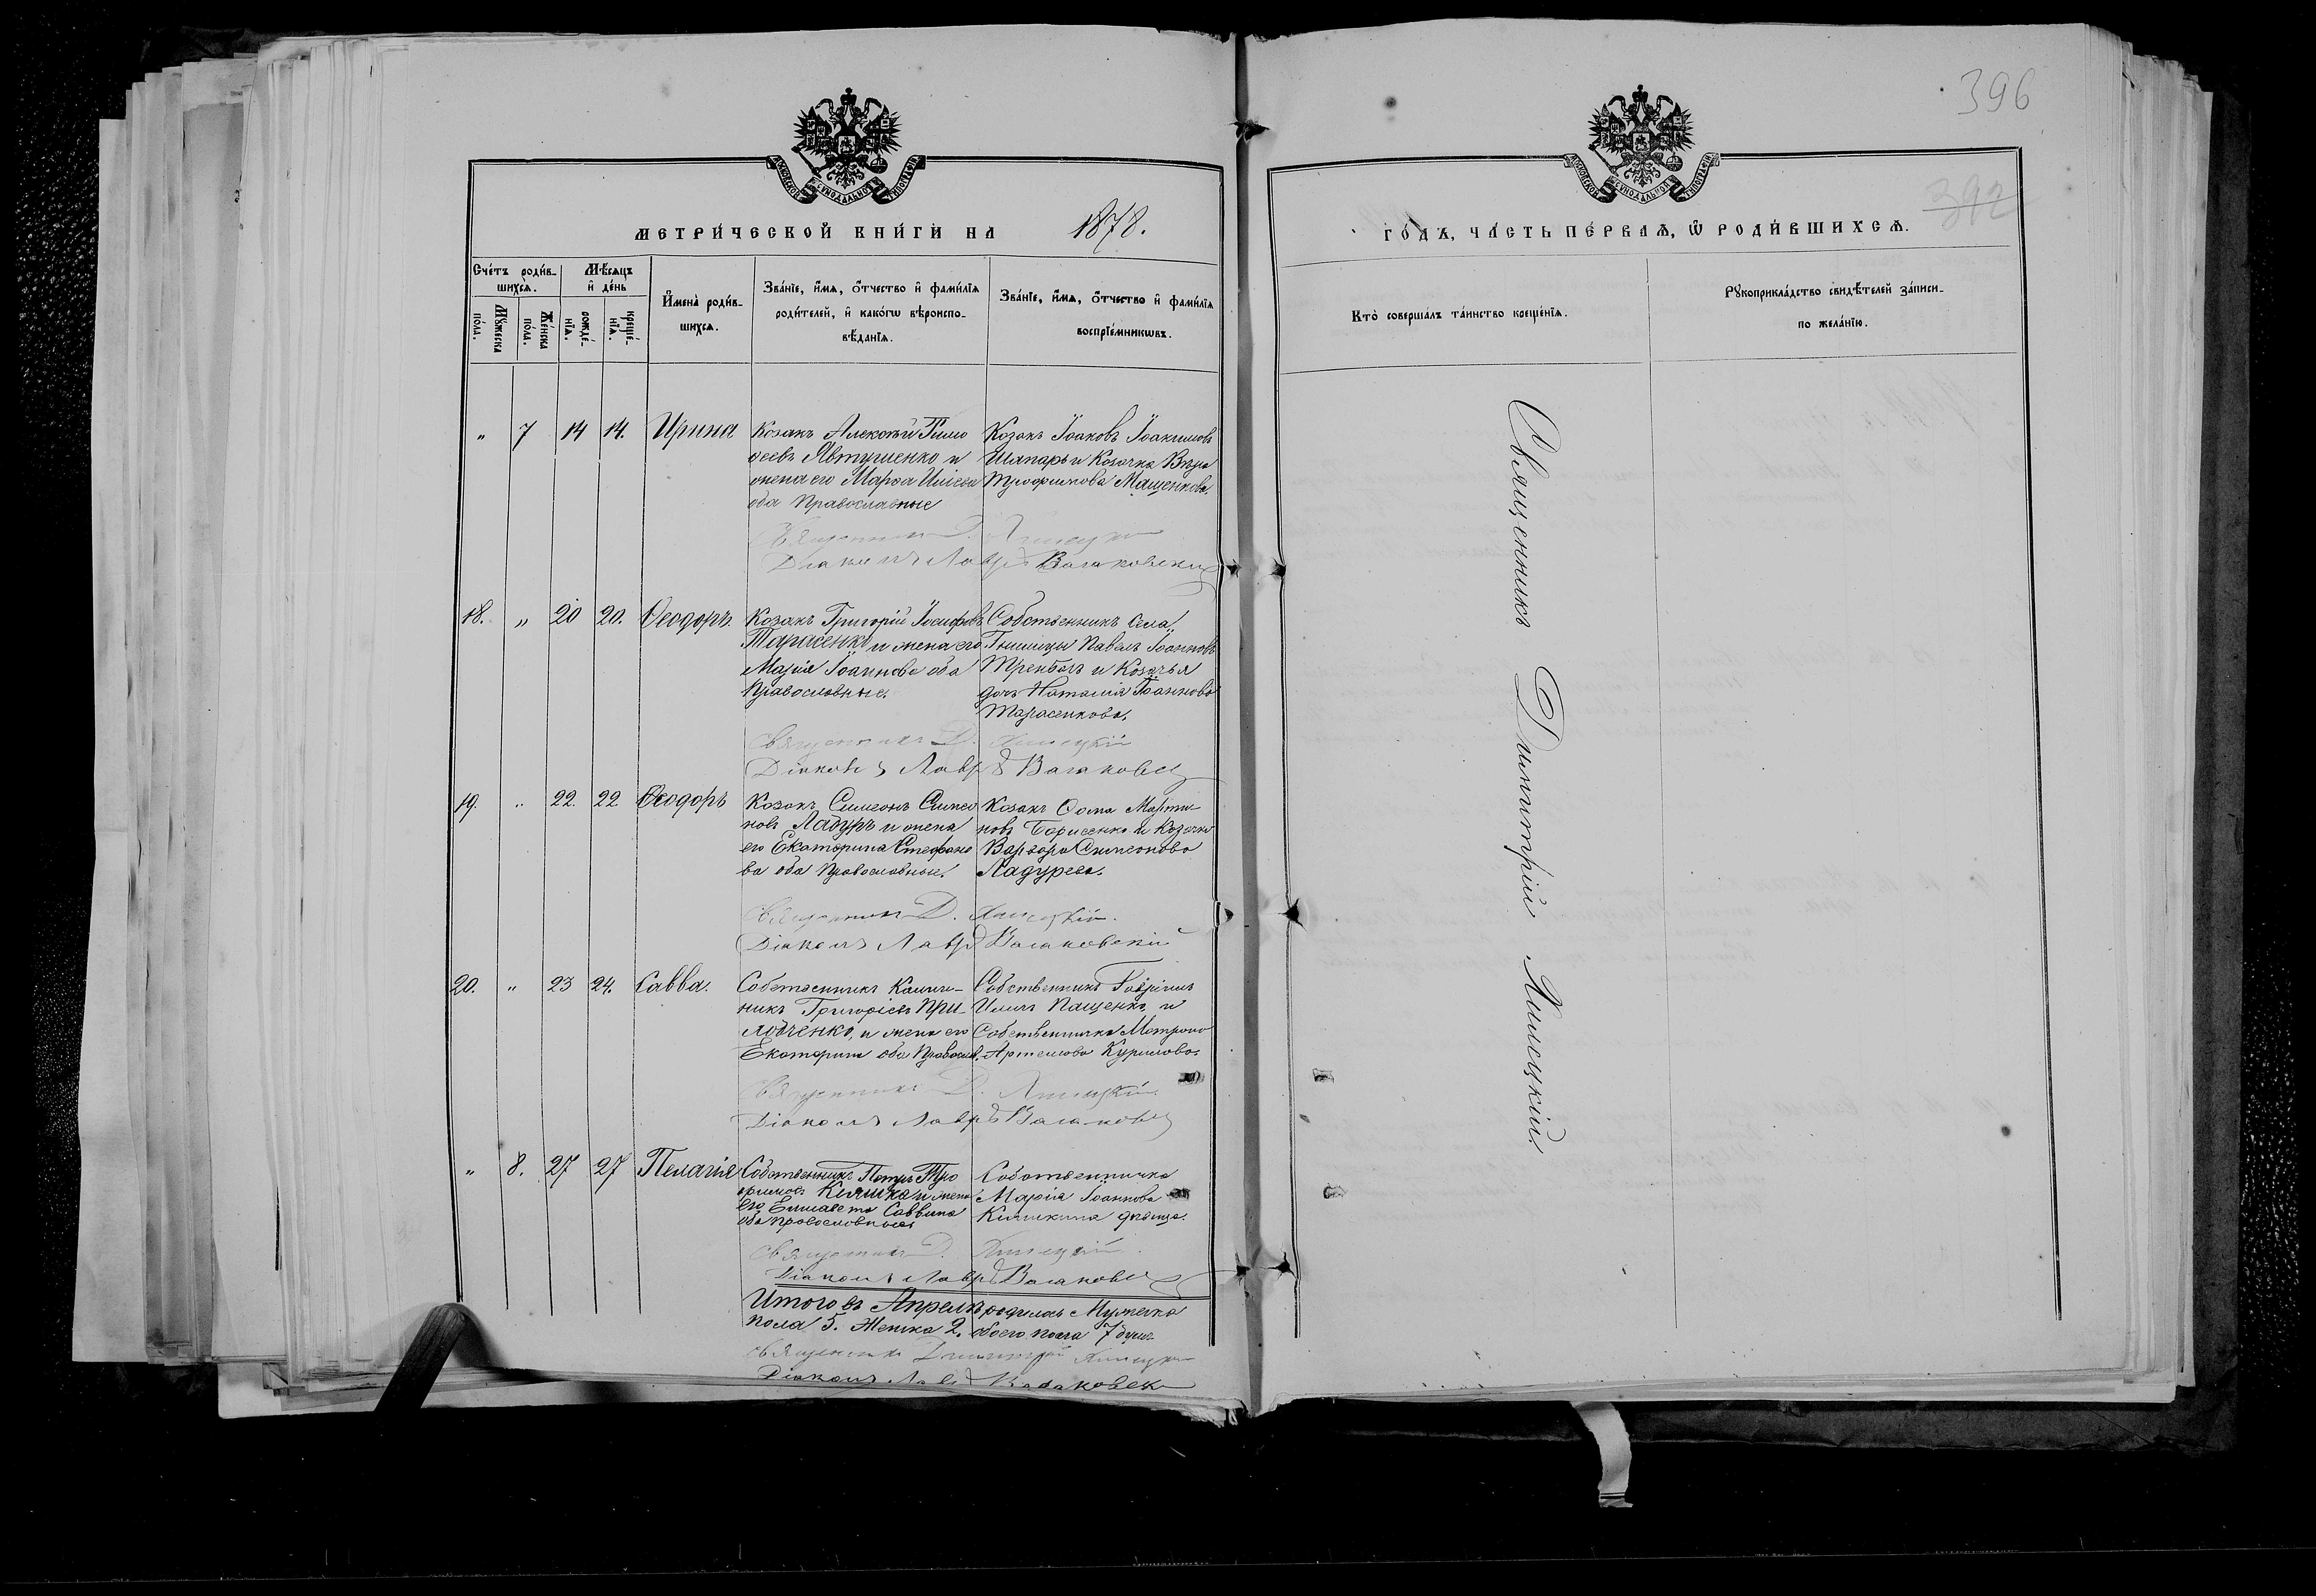 396
392
МОСКОВСКОЙ СѴНОДАЛЬНОЙ ТИПОГРАФІИ
МОСКОВСКОЙ СѴНОДАЛЬНОЙ ТИПОГРАФІИ
МЕТРИ́ЧЕСКОЙ КНИ́ГИ НА 1878.
ГО́ДЪ, ЧА́СТЬ ПЕ́РВАѦ, Ѡ҆ РОДИ́ВШИХСѦ.
Сче́тъ роди́в-
шихсѧ.
Мѣ́сѧцъ
и҆ де́нь
Мꙋ́жеска
по́ла.
Же́нска
по́ла.
рожде́-
нїѧ.
креще́-
нїѧ.
И҆мена̀ роди́в-
шихсѧ.
Зва́нїе, и҆́мѧ, ѻ҆́тчество и҆ фами́лїѧ
роди́телей, и҆ како́гѡ вѣроиспо-
вѣ́данїѧ.
Зва́нїе, и҆́мѧ, ѻ҆́тчество и҆ фами́лїѧ
воспрїе́мникѡвъ.
Кто̀ соверша́лъ та́инство креще́нїѧ.
Рꙋкоприкла́дство свидѣ́телей за́писи
по жела́нїю.
" 7 14 14. Ирина
Козакъ Алексѣй Тимо
ѳеевъ Явтушенко и
жена его Марѳа
оба Православные
Козакъ Іоаковъ Іоакимовъ
Шапарь и Козачка Вѣра
Трофимова Мащенкова.
Священникъ Д. Липецкій
Діаконъ Лавръ Валаковскій
18. " 20 20. Ѳеодоръ.
Козакъ Григорій Іосифовъ
Тарасенко и жена его
Марія Іоаннова оба
Православные.
Собственникъ села
Павелъ Іоанновъ
Трембачъ и Козачья
дочь Наталія Іоаннова
Тарасенкова.
Священникъ Д. Липецкій
Діаконъ Лавръ Валаковскій
19. " 22 22 Ѳеодоръ
Козакъ Симеонъ Симео
новъ Ладуръ и жена
его Екатерина Стефано
ва оба Православные.
Козакъ Ѳома Марти-
новъ Борисенко и Козачка
Варвара Симеонова
Ладурева.
Священникъ Д. Липецкій.
Діаконъ Лавръ Валаковскій
20. " 23 24. Савва.
Собственникъ Калин-
никъ Григоріевъ При-
лѣпченко, и жена его
Екатерина оба Правосл.
Собственникъ Гавріилъ
Ильичъ Пащенко, и
Собственничка Матрона
Артемова Курилова.
Священникъ Д. Липецкій.
Діаконъ Лавръ Валаковскій
" 8. 27 27 Пелагія
Собственникъ Петръ Тро
фимовъ Кишка и жена
его Елисавета Саввина
оба православные
Собственничка
Марія Іоаннова
Кишкина дѣвица.
Священникъ Д. Липецкій.
Діаконъ Лавръ Валаковскій
Итого въ Апрелѣ родилось Мужеска
пола 5. Женска 2. обоего пола 7 душъ
Священникъ Димитрій Липецкій
Діаконъ Лавръ Валаковскій
Священникъ Димитрій Липецкій.